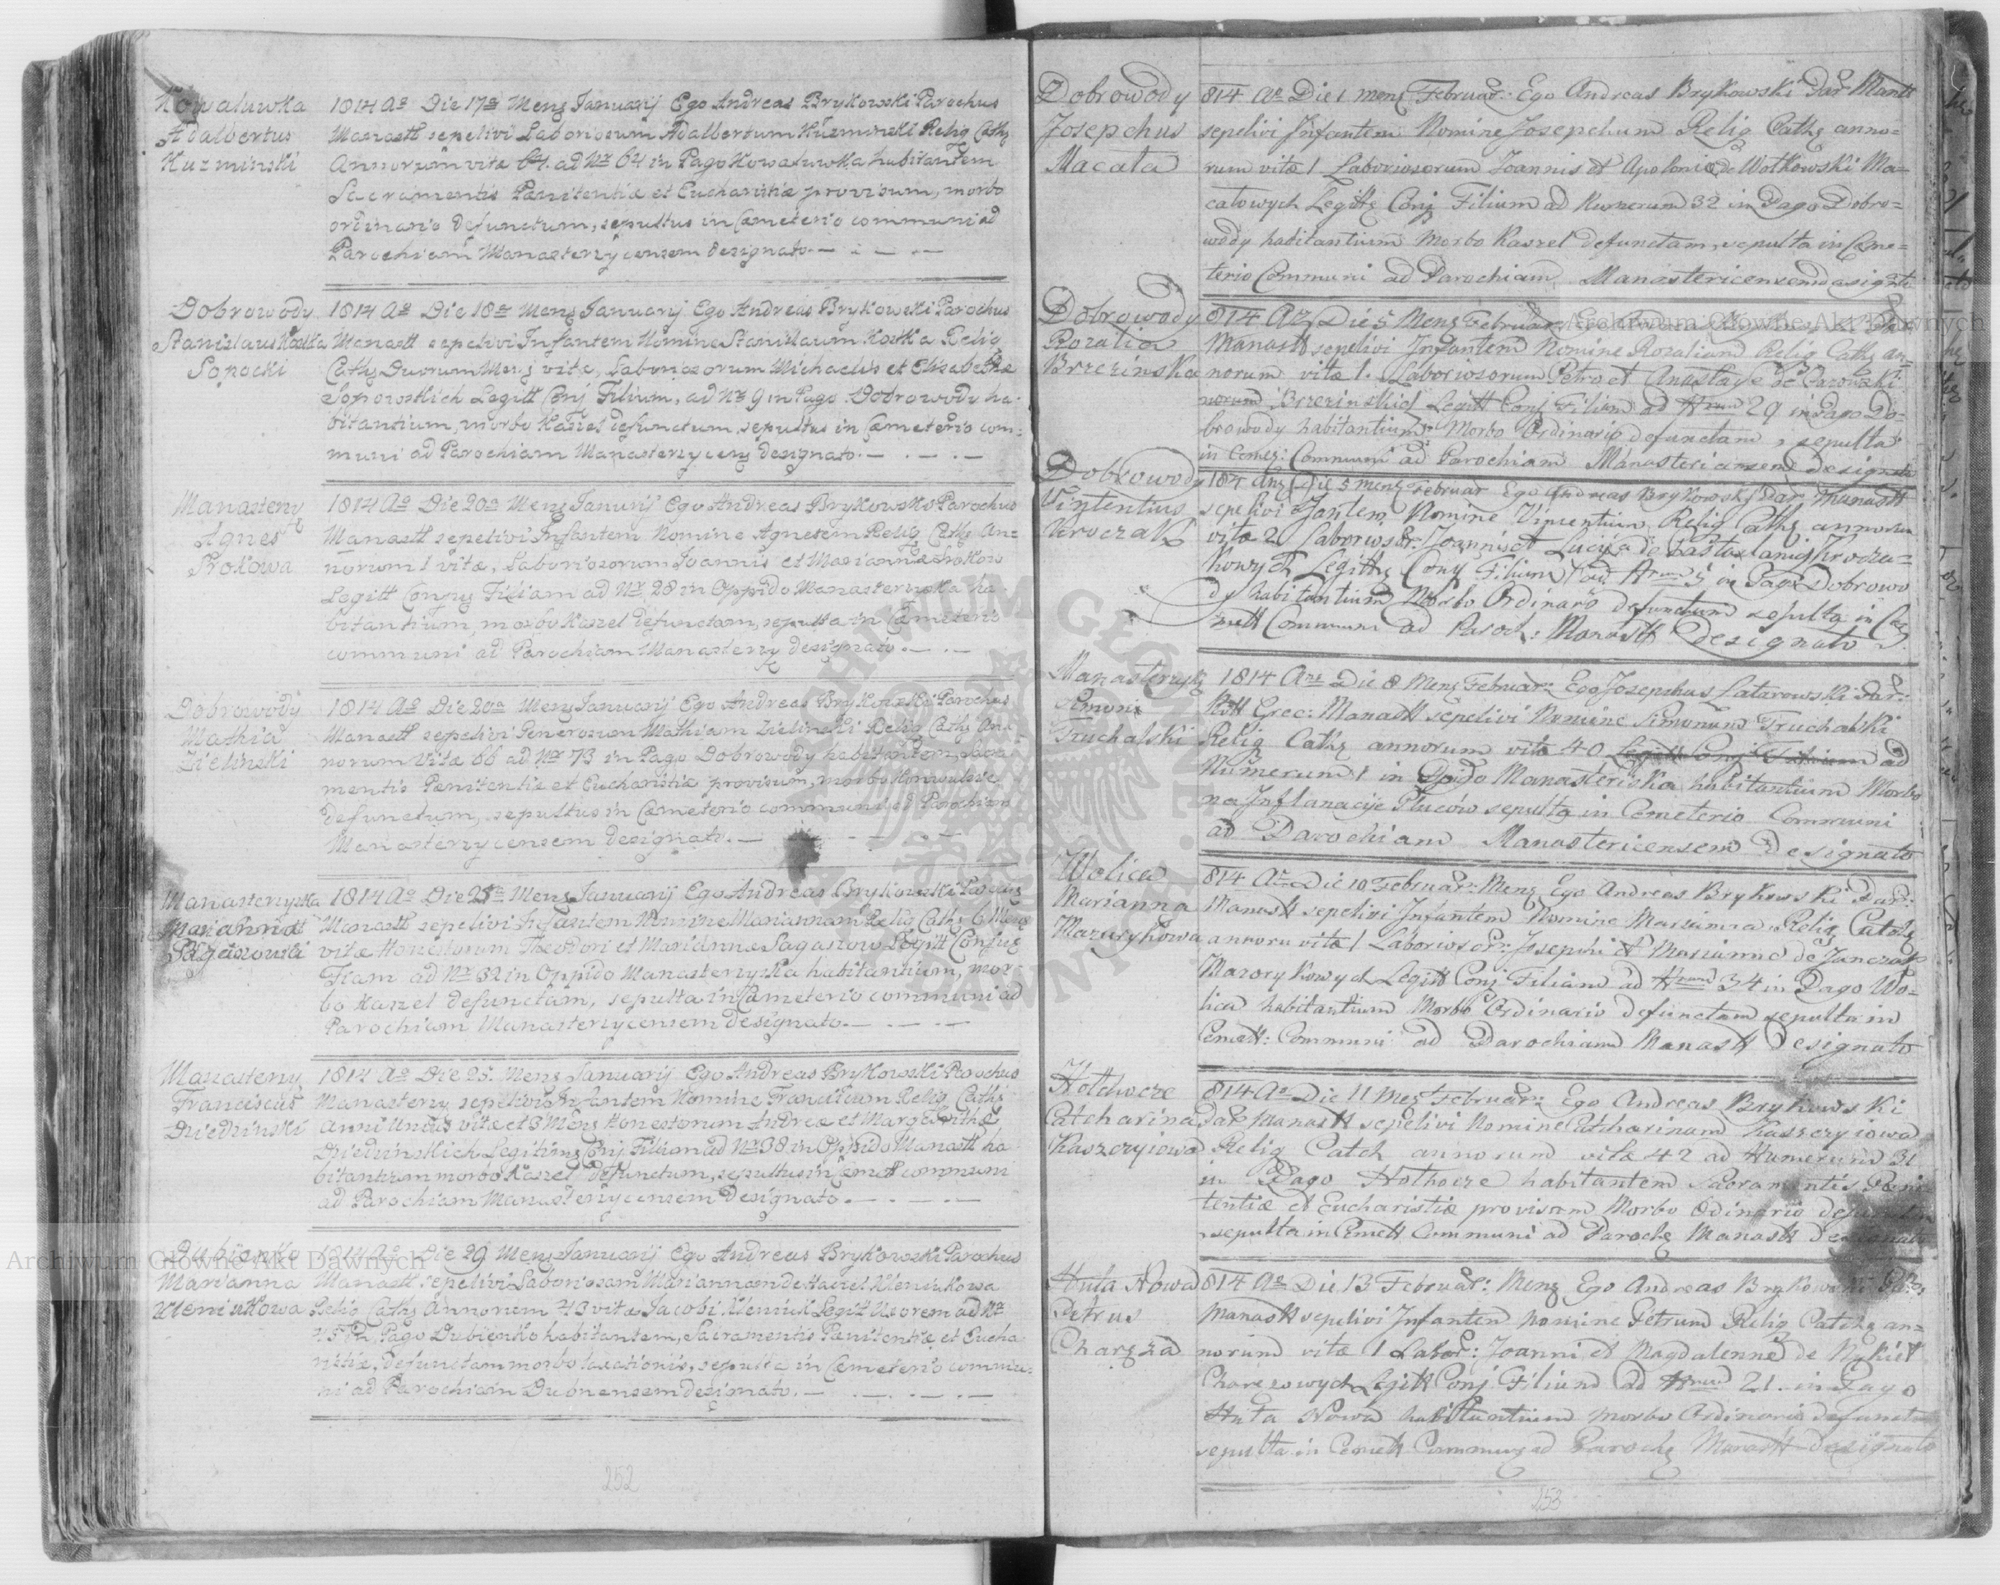 Kowaluwka
Adalbertus
Kuzminski
1814 Ao Die 17a Mens Januarij Ego Andreas Brykowski Parochus
Manastt sepelivi Laboriosum Adalbertum Kuzminski Relig Cathg
Annorum vitæ 64. ad Nr 64 in Pago Kowaluwka habitantem
Sacramentis Pænitentiæ et Eucharistiæ provisum, morbo
ordinario defunctum, sepultus in Cæmeterio communi ad
Parochiam Manasterzycensem designato.
Dobrowody
Stanislaus Kostka
Sopocki
1814 Ao Die 18a Mens Januarij Ego Andreas Brykowski Parochus
Manastt sepelivi Infantem Nomine Stanislaum Kostka Relig
Cathg Duorum Mens vitæ, Laboriosorum Michaelis et Elisabethæ
Legitt Conj Filium, ad Nr 9 in Pago Dobrowody ha-
bitantium, morbo Kaszel defunctum, sepultus in Cæmeterio com-
muni ad Parochiam Manasterzycens designato.
Manasterzy
Agnes
Prokowa
1814 Ao Die 20a Mens Januarij Ego Andreas Brykowski Parochus
Manastt sepelivi Infantem Nomine Agnesem Relig Cathg An-
norum 1 vitæ, Laboriosorum Joannis et Mariannæ
Legitt Conjug Filiam ad Nr 28 in Oppido Manasterzyska ha-
bitantium, morbo Kaszel defunctam, sepulta in Cæmeterio
communi ad Parochiam Manasterzy designato.
Dobrowody
Mathia
Zielinski
1814 Ao Die 20a Mens Januarij Ego Andreas Brykowski Parochus
Manastt sepelivi Generosum Mathiam Zielinski Relig Cathg An-
norum vitæ 66 ad Nr 73 in Pago Dobrowody habitantem, Sacra-
mentis Pænitentiæ et Eucharistiæ provisum, morbo
defunctum, sepultus in Cæmeterio communi ad Parochiam
Manasterzycensem designato.
Manasterzyska
Marianna
1814 Ao Die 25a Mens Januarij Ego Andreas Brykowski Parochus
Manastt sepelivi Infantem Nomine Mariannam Relig Cathg 6 Mens
vitæ Honestorum Theodori et Mariannæ Legitt Conjug
Filiam ad Nr 32 in Oppido Manasterzyska habitantium, mor-
bo Kaszel defunctam, sepulta in Cæmeterio communi ad
Parochiam Manasterzycensem designato.
Manasterzy
Franciscus
Dziedzinski
1814 Ao Die 25. Mens Januarij Ego Andreas Brykowski Parochus
Manasterzy sepelivi Infantem Nomine Franciscum Relig Cathg
Anni Unius vitæ et 3 Mens Honestorum Andreæ et Margarithæ
Dziedzinskich Legitims Conj Filium ad Nr 38 in Oppido Manastt ha-
bitantium morbo Kaszel defunctum, sepultus in Cæmet communi
ad Parochiam Manasterzycensem Designato.
Dubienko
Marianna
Kleniukowa
1814 Ao Die 29 Mens Januarij Ego Andreas Brykowski Parochus
Manastt sepelivi Laboriosam Mariannam de Kleniukowa
Relig Cathg Annorum 43 vitæ Jacobi Kleniuk Legitt Uxorem ad Nr
in Pago Dubienko habitantem, Sacramentis Pænitentiæ et Eucha-
ristiæ, defunctam morbo laxationis, sepulta in Cæmeterio commu-
ni ad Parochiam Dubnensem designato.
252
Dobrowody
Josepchus
Macata
814 Ao Die 1 Mens Februar: Ego Andreas Brykowski Par Mantt
sepelivi Infantem Nomine Josepchum Relig Cathg anno-
rum vitæ 1 Laboriosorum Joannis et Apoloniæ de Wotkowski Ma-
catowych Legitt Conj Filium ad Numerum 32 in Pago Dobro-
wody habitantium Morbo Kaszel defunctam, sepulta in Ceme-
terio Communi ad Parochiam Manastericensem
Dobrowody
Rozalia
Brzezinska
814 Ao Die 5 Mens Februar
Manastt sepelivi Infantem Nomine Rozaliam Relig Cathg an-
norum vitæ 1. Laboriosorum Petro et
Brzezinskich Legitt Conj Filiam ad Nrum 29 in Pago Do-
browody habitantium Morbo Ordinario defunctam, sepulta
in Cemet: Communi ad Parochiam Manastericensem Designato
Dobrowody
Vintentius
Kroczak
Die 5 Mens Februar Ego Andreas Brykowski Par Manastt
sepelivi Nomine Vincentium Relig Cathg annorum
vitæ 2 Laborios: Joannis et Lucija de
Legitt Conj Filium ad Nrum 5 in Pago Dobrowo
dy habitantium Morbo Ordinario defunctum sepulta in Ce
mett Communi ad Paroch: Manastt Designato
Manasterzysk
Simoni
Truchalski
1814 Ano Die 8 Mens Februar: Ego Josephus Latarowski Par:
Ritt Grec: Manastt sepelivi Nomine Simonum Truchalski
Relig Cathg annorum vitæ 40 Legitt Conj Filium ad
Numerum 1 in Opido Manasteriska habitantium Morbo
na Inflanacije Pluców sepulta in Cemeterio Communi
ad Parochiam Manastericensem designato
Wolica
Marianna
Mazurykowa
814 Ao Die 10 Februar: Mens Ego Andreas Brykowski Par:
Manastt sepelivi Infantem Nomine Marianna Relig Cathg
annoru vitæ 1 Laborios: Josephi et Marianne de Janczak
Mazorykowych Legitt Conj Filiam ad Nrum 34 in Pago Wo-
lica habitantium Morbo Ordinario defunctam sepulta in
Cemett: Communi ad Parochiam Manastt Designato
Hothocze
Catcharina
Kaszczyiowa
814 Ao Die 11 Mens Februar: Ego Andreas Brykowski
Par Manastt sepelivi Nomine Catcharinam Kaszczyiowa
Relig Catch annorum vitæ 42 ad Numerum 31
in Pago Hothocze habitantem Sacramentis Peni-
tentiæ et Eucharistiæ provisam Morbo Ordinario defunctam
sepulta in Cemett Communi ad Paroch Manastt Designato
Huta Nowa
Petrus
Charzza
814 Ao Die 13 Februar: Mens Ego Andreas Brykowski Par:
Manastt sepelivi Infantem Nomine Petrum Relig Catchg an-
norum vitæ 1 Labor: Joanni et Magdalenne de
Legitt Conj Filium ad Nrum 21. in Pago
Huta Nowa habitantium morbo Ordinario defunctu
sepulta in Cemett Communi ad Paroch Manastt designato
253
Archiwum Główne Akt Dawnych
Archiwum Główne Akt Dawnych
ARCHIWUM GŁÓWNE AKT DAWNYCH